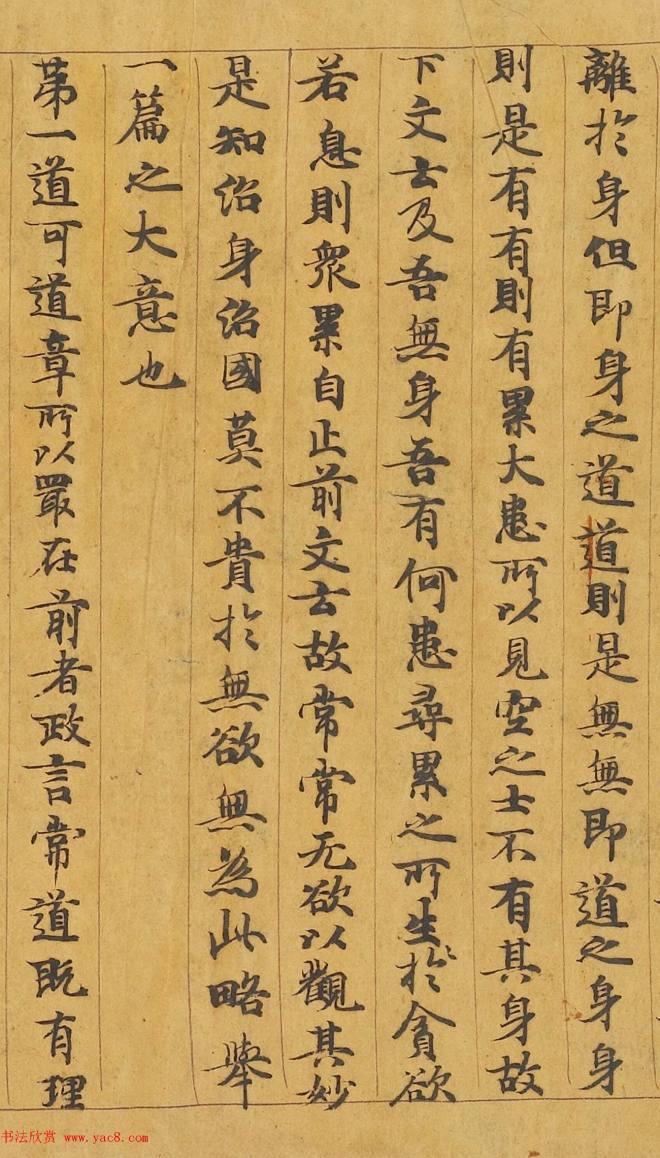 離於身但即身之道道則是無無即道之身身
則是有有則有累大患所以見空之士不有其身故
下文云及吾無身吾有何患尋累之所生生於貪欲
若息則衆累自止前文云故常常无欲以觀其妙
是知治身治國莫不貴於無欲無為此略舉
一篇之大意也
第一道可道章所以最在前者政言常道既有理
书法欣赏 www.yac8.com